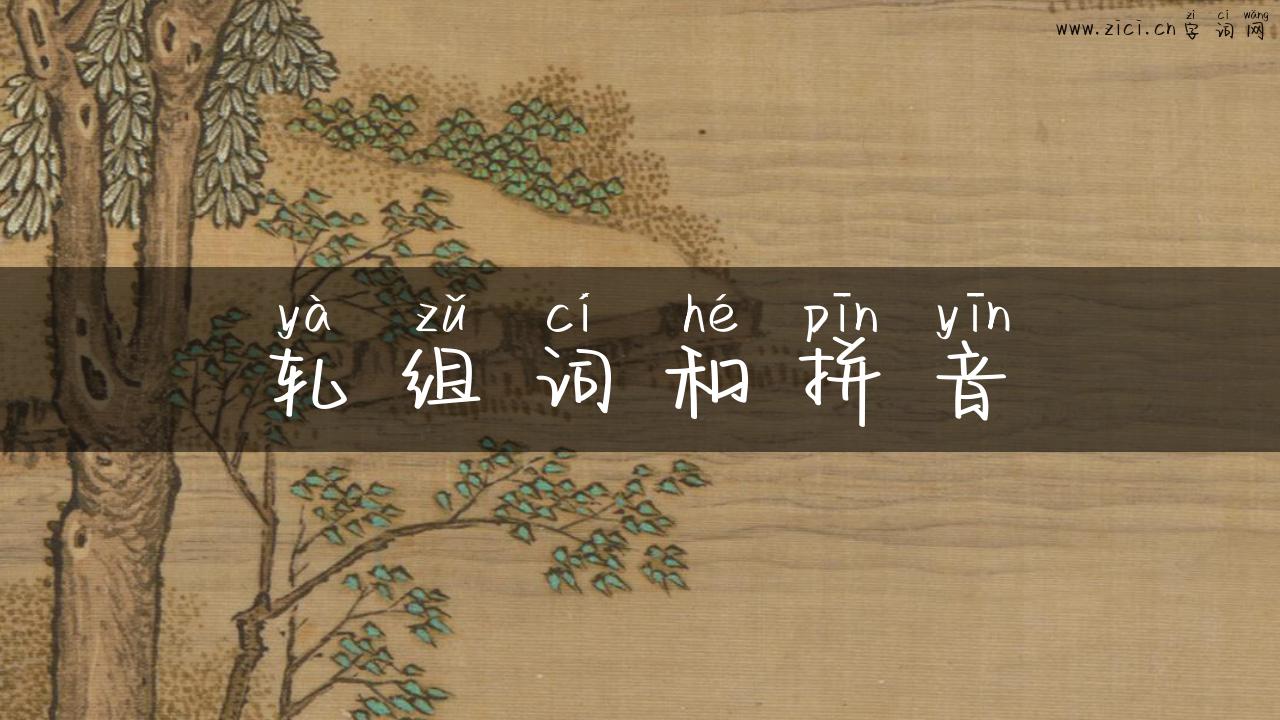 zì cí wǎng
www.zici.cn字词网
yà zǔ cí hé pīn yīn
轧组词和拼音